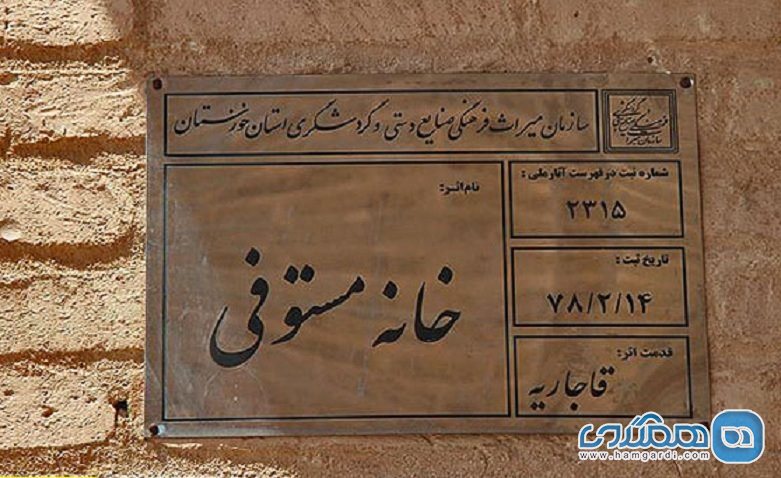 سازمان میراث فرهنگی صنایع دستی و گردشگری استان خوزستان
شماره ثبت در فهرست آثار ملی :
۲۳۱۵
تاریخ ثبت :
۷۸/۲/۱۴
قدمت اثر:
قاجاریه
نام اثر:
خانه مستوفی
همگردی
www.hamgardi.com